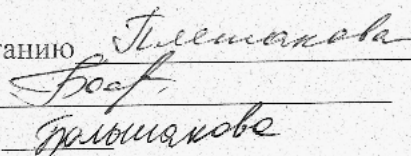 танию Плешакова
Большакова